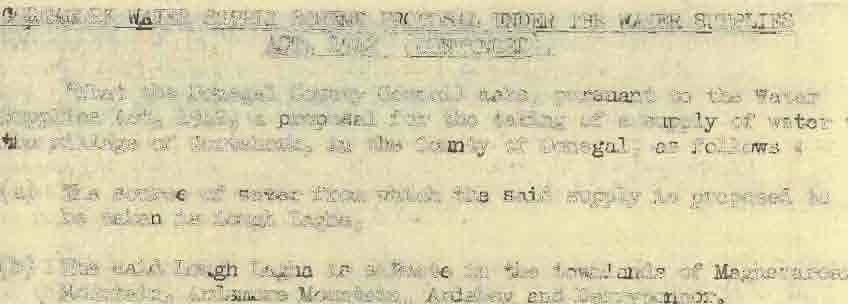 WATER SUPPLY SCHEME PROPOSAL UNDER THE WATER SUPPLIES
ACT, 1942 (CONTINUED).
"That the Donegal County Council make, pursuant to the Water
Supplies Act, 1942, a proposal for the taking of a supply of water
the village of in the County of Donegal, as follows :
(a) The source of water from which the said supply is proposed to
be taken is Lough
(b) The said Lough is situate in the townlands of
Mountain, Mountain, and